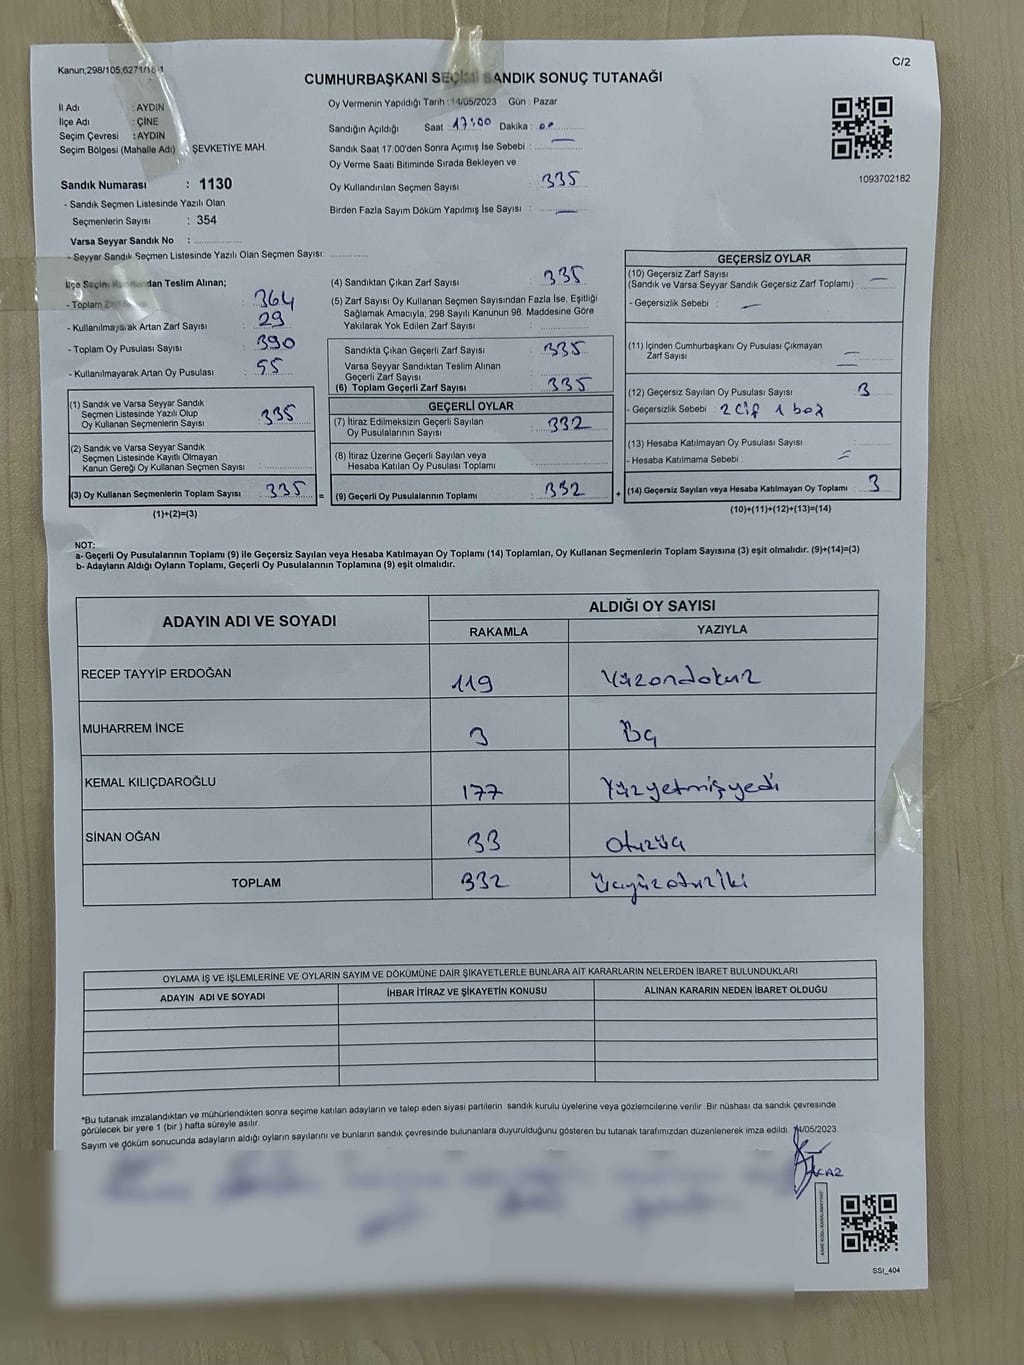 Kanun;298/105;6271/18-1
C/2
CUMHURBAŞKANI SEÇİMİ SANDIK SONUÇ TUTANAĞI
İl Adı : AYDIN
İlçe Adı : ÇİNE
Seçim Çevresi : AYDIN
Seçim Bölgesi (Mahalle Adı) : ŞEVKETİYE MAH.
Sandık Numarası : 1130
- Sandık Seçmen Listesinde Yazılı Olan
Seçmenlerin Sayısı : 354
Varsa Seyyar Sandık No :
- Seyyar Sandık Seçmen Listesinde Yazılı Olan Seçmen Sayısı:
Oy Vermenin Yapıldığı Tarih : 14/05/2023 Gün : Pazar
Sandığın Açıldığı Saat : 17:00 Dakika : 00
Sandık Saat 17:00'den Sonra Açımış İse Sebebi : —
Oy Verme Saati Bitiminde Sırada Bekleyen ve
Oy Kullandırılan Seçmen Sayısı 335
Birden Fazla Sayım Döküm Yapılmış İse Sayısı : —
1093702182
İlçe Seçim Kurulundan Teslim Alınan;
- Toplam Zarf Sayısı : 364
- Kullanılmayarak Artan Zarf Sayısı : 29
- Toplam Oy Pusulası Sayısı : 390
- Kullanılmayarak Artan Oy Pusulası : 55
(1) Sandık ve Varsa Seyyar Sandık
Seçmen Listesinde Yazılı Olup
Oy Kullanan Seçmenlerin Sayısı : 335
(2) Sandık ve Varsa Seyyar Sandık
Seçmen Listesinde Kayıtlı Olmayan
Kanun Gereği Oy Kullanan Seçmen Sayısı :
(3) Oy Kullanan Seçmenlerin Toplam Sayısı : 335 =
(1)+(2)=(3)
(4) Sandıktan Çıkan Zarf Sayısı : 335
(5) Zarf Sayısı Oy Kullanan Seçmen Sayısından Fazla İse, Eşitliği
Sağlamak Amacıyla; 298 Sayılı Kanunun 98. Maddesine Göre
Yakılarak Yok Edilen Zarf Sayısı :
Sandıkta Çıkan Geçerli Zarf Sayısı : 335
Varsa Seyyar Sandıktan Teslim Alınan
Geçerli Zarf Sayısı :
(6) Toplam Geçerli Zarf Sayısı : 335
GEÇERLİ OYLAR
(7) İtiraz Edilmeksizin Geçerli Sayılan
Oy Pusulalarının Sayısı : 332
(8) İtiraz Üzerine Geçerli Sayılan veya
Hesaba Katılan Oy Pusulası Toplamı
(9) Geçerli Oy Pusulalarının Toplamı : 332 +
GEÇERSİZ OYLAR
(10) Geçersiz Zarf Sayısı
(Sandık ve Varsa Seyyar Sandık Geçersiz Zarf Toplamı) : —
- Geçersizlik Sebebi : —
(11) İçinden Cumhurbaşkanı Oy Pusulası Çıkmayan
Zarf Sayısı : —
(12) Geçersiz Sayılan Oy Pusulası Sayısı : 3
- Geçersizlik Sebebi : 2 Cif 1 boz
(13) Hesaba Katılmayan Oy Pusulası Sayısı :
- Hesaba Katılmama Sebebi :
(14) Geçersiz Sayılan veya Hesaba Katılmayan Oy Toplamı : 3
(10)+(11)+(12)+(13)=(14)
NOT:
a- Geçerli Oy Pusulalarının Toplamı (9) ile Geçersiz Sayılan veya Hesaba Katılmayan Oy Toplamı (14) Toplamları, Oy Kullanan Seçmenlerin Toplam Sayısına (3) eşit olmalıdır. (9)+(14)=(3)
b- Adayların Aldığı Oyların Toplamı, Geçerli Oy Pusulalarının Toplamına (9) eşit olmalıdır.
ADAYIN ADI VE SOYADI
ALDIĞI OY SAYISI
RAKAMLA YAZIYLA
RECEP TAYYİP ERDOĞAN 119 Yüzondokuz
MUHARREM İNCE 3 Üç
KEMAL KILIÇDAROĞLU 177 Yüzyetmişyedi
SİNAN OĞAN 33 Otuzüç
TOPLAM 332 Üçyüzotuziki
OYLAMA İŞ VE İŞLEMLERİNE VE OYLARIN SAYIM VE DÖKÜMÜNE DAİR ŞİKAYETLERLE BUNLARA AİT KARARLARIN NELERDEN İBARET BULUNDUKLARI
ADAYIN ADI VE SOYADI İHBAR İTİRAZ VE ŞİKAYETİN KONUSU ALINAN KARARIN NEDEN İBARET OLDUĞU
*Bu tutanak imzalandıktan ve mühürlendikten sonra seçime katılan adayların ve talep eden siyasi partilerin sandık kurulu üyelerine veya gözlemcilerine verilir. Bir nüshası da sandık çevresinde
görülecek bir yere 1 (bir ) hafta süreyle asılır.
Sayım ve döküm sonucunda adayların aldığı oyların sayılarını ve bunların sandık çevresinde bulunanlara duyurulduğunu gösteren bu tutanak tarafımızdan düzenlenerek imza edildi. 14/05/2023
SSI_404